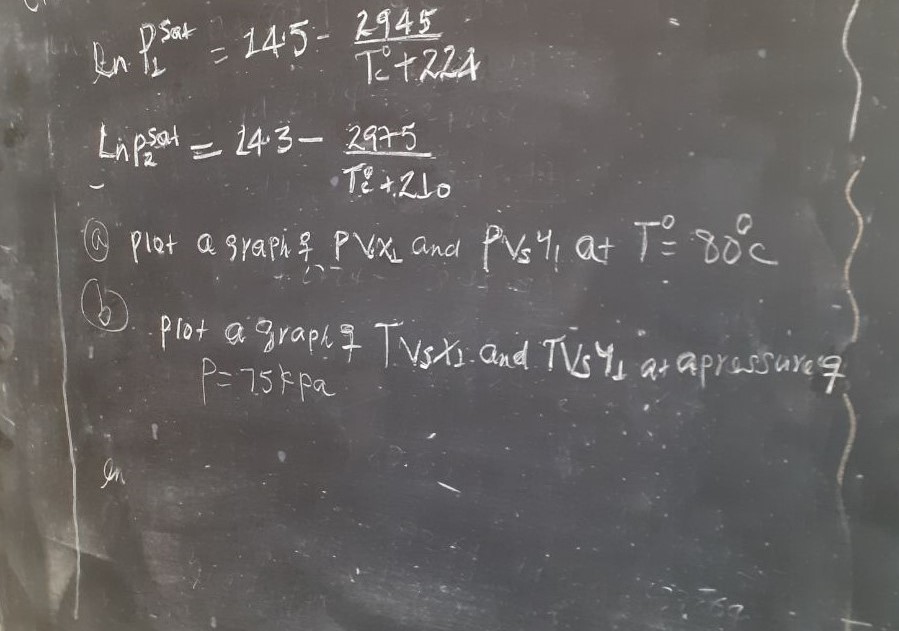 ln P₁ˢᵃᵗ = 14.5 - 2945 / T°c + 224
Ln P₂ˢᵃᵗ = 14.3 - 2975 / T°c + 210
(a) plot a graph of P Vx₁ and P Vs y₁ at T° = 80°c
(b)
plot a graph of T Vs x₁ and T Vs y₁ at a pressure of
P = 75 kpa
ln